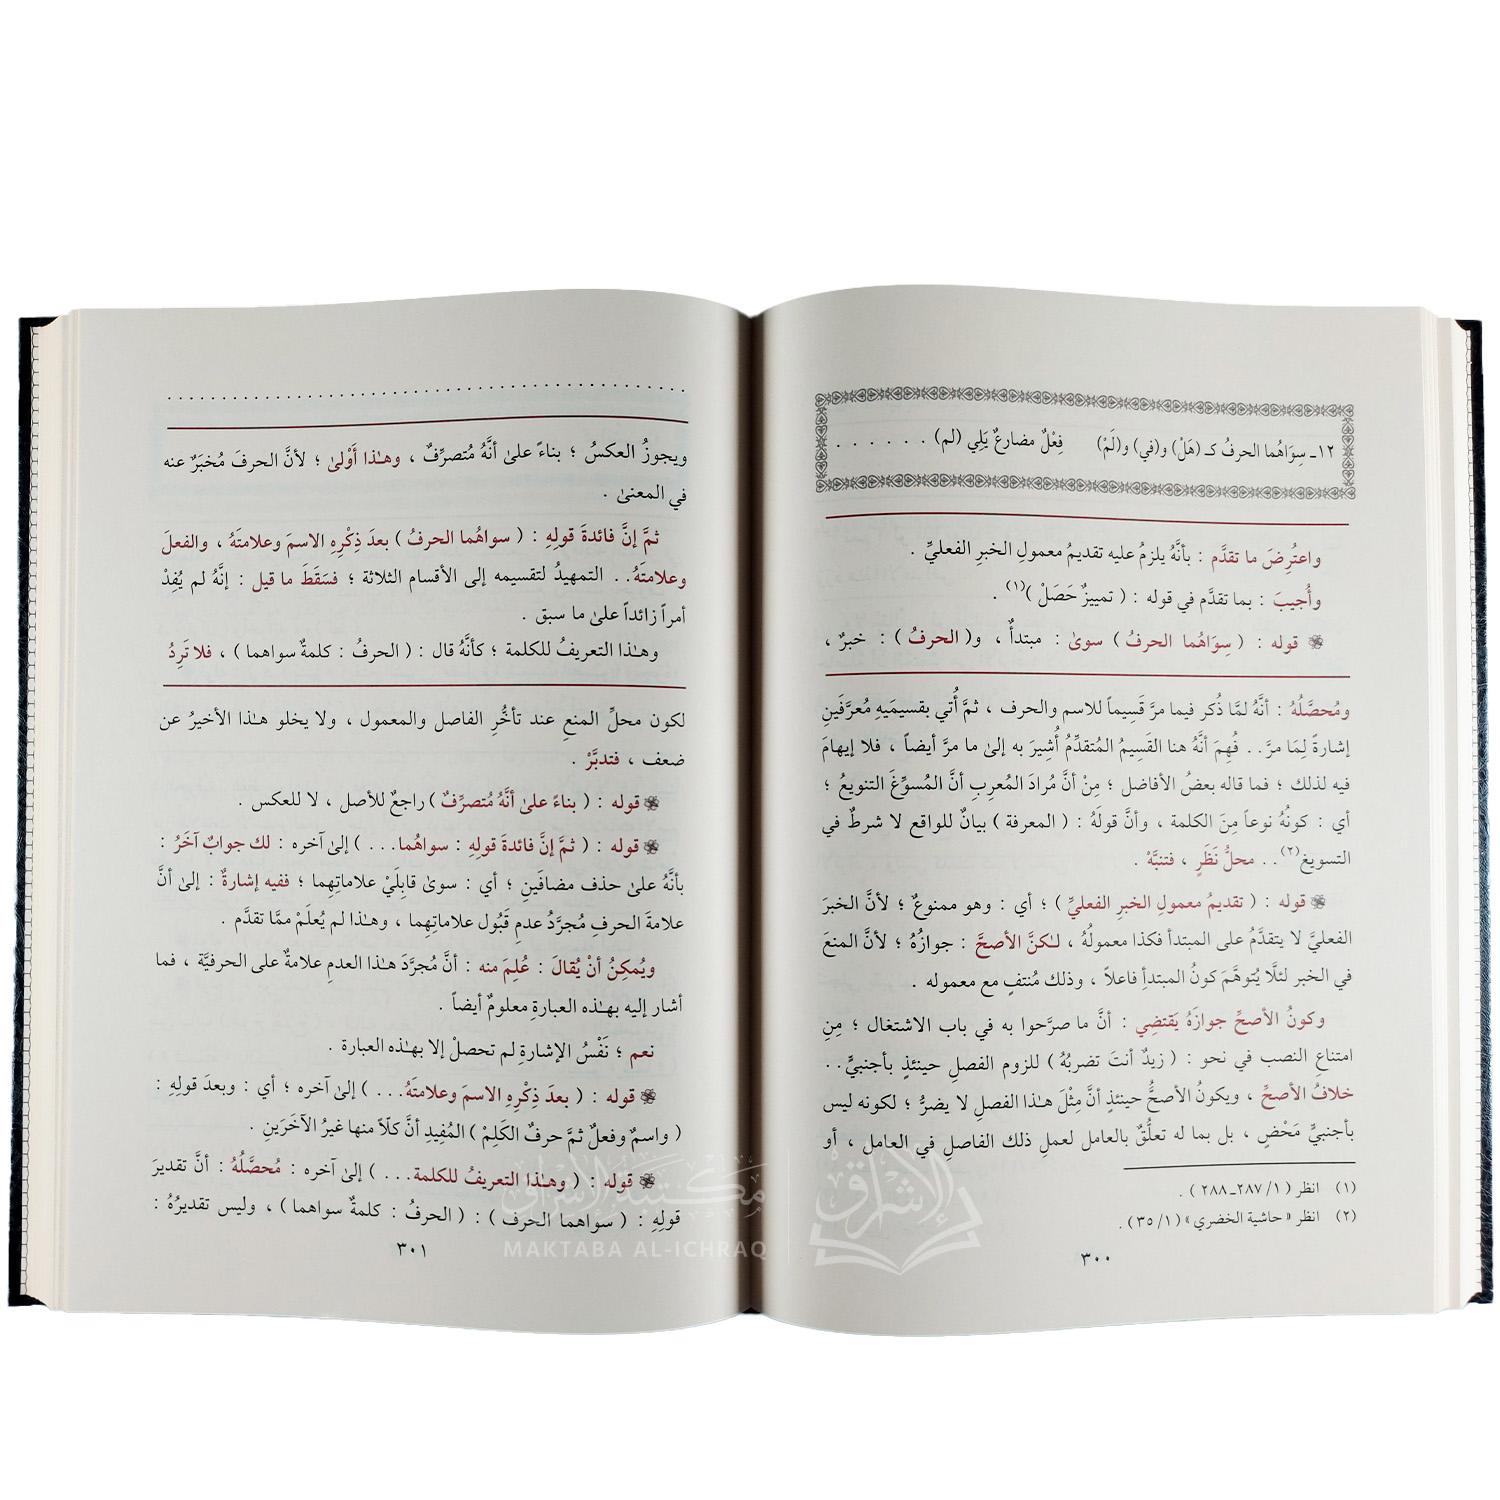 ١٢ـ سِوَاهُما الحرفُ كـ (هَلْ) و(في) و(لَمْ) فِعْلٌ مضارعٌ يَلِي (لم) . . . . . .
واعتُرِضَ ما تقدَّم : بأنَّهُ يلزمُ عليه تقديمُ معمولِ الخبرِ الفعليِّ .
وأُجيبَ : بما تقدَّم في قوله : ( تمييزٌ حَصَلْ )(١) .
❀ قوله : ( سِوَاهُما الحرفُ ) سوىٰ : مبتدأٌ ، و( الحرفُ ) : خبرٌ ،
ومُحصَّلُهُ : أنَّهُ لمَّا ذُكر فيما مرَّ قَسِيماً للاسم والحرف ، ثمَّ أُتي بقسيمَيهِ مُعرَّفَينِ
إشارةً لِمَا مرَّ . . فُهِمَ أنَّهُ هنا القَسِيمُ المُتقدِّمُ أُشِيرَ به إلىٰ ما مرَّ أيضاً ، فلا إيهامَ
فيه لذلك ؛ فما قاله بعضُ الأفاضل ؛ مِنْ أنَّ مُرادَ المُعرِبِ أنَّ المُسوِّغَ التنويعُ ؛
أي : كونُهُ نوعاً مِنَ الكلمة ، وأنَّ قولَهُ : ( المعرفة ) بيانٌ للواقع لا شرطٌ في
التسويغ(٢) . . محلُّ نَظَرٍ ، فتنبَّهْ .
❀ قوله : ( تقديمُ معمولِ الخبرِ الفعليِّ ) ؛ أي : وهو ممنوعٌ ؛ لأنَّ الخبرَ
الفعليَّ لا يتقدَّمُ على المبتدأ فكذا معمولُهُ ، لـٰكنَّ الأصحَّ : جوازُهُ ؛ لأنَّ المنعَ
في الخبر لئلَّا يُتوهَّمَ كونُ المبتدأِ فاعلاً ، وذلك مُنتفٍ مع معموله .
وكونُ الأصحِّ جوازَهُ يَقتضِي : أنَّ ما صرَّحوا به في باب الاشتغال ؛ مِنِ
امتناع النصب في نحو : ( زيدٌ أنتَ تضربُهُ ) للزوم الفصلِ حينئذٍ بأجنبيٍّ . .
خلافُ الأصحِّ ، ويكونُ الأصحُّ حينئذٍ أنَّ مِثْلَ هـٰذا الفصلِ لا يضرُّ ؛ لكونه ليس
بأجنبيٍّ مَحْضٍ ، بل بما له تعلُّقٌ بالعامل لعملِ ذلك الفاصلِ في العامل ، أو
(١) انظر ( ١/ ٢٨٧ـ٢٨٨ ) .
(٢) انظر « حاشية الخضري » ( ١/ ٣٥ ) .
٣٠٠
ويجوزُ العكسُ ؛ بناءً علىٰ أنَّهُ مُتصرِّفٌ ، وهـٰذا أَوْلىٰ ؛ لأنَّ الحرفَ مُخبَرٌ عنه
في المعنىٰ .
ثمَّ إنَّ فائدةَ قولِهِ : ( سواهُما الحرفُ ) بعدَ ذِكْرِهِ الاسمَ وعلامتَهُ ، والفعلَ
وعلامتَهُ . . التمهيدُ لتقسيمه إلى الأقسام الثلاثة ؛ فسَقَطَ ما قيل : إنَّهُ لم يُفِدْ
أمراً زائداً علىٰ ما سبق .
وهـٰذا التعريفُ للكلمة ؛ كأنَّهُ قال : ( الحرفُ : كلمةٌ سواهما ) ، فلا تَرِدُ
لكون محلِّ المنعِ عند تأخُّرِ الفاصل والمعمول ، ولا يخلو هـٰذا الأخيرُ عن
ضعف ، فتدبَّرْ .
❀ قوله : ( بناءً علىٰ أنَّهُ مُتصرِّفٌ ) راجعٌ للأصل ، لا للعكس .
❀ قوله : ( ثمَّ إنَّ فائدةَ قولِهِ : سواهُما . . . ) إلىٰ آخره : لك جوابٌ آخَرُ :
بأنَّهُ علىٰ حذف مضافَينِ ؛ أي : سوىٰ قابِلَيْ علاماتِهِما ؛ ففيه إشارةٌ : إلىٰ أنَّ
علامةَ الحرفِ مُجرَّدُ عدمِ قَبُول علاماتِهِما ، وهـٰذا لم يُعلَمْ ممَّا تقدَّم .
ويُمكِنُ أنْ يُقالَ : عُلِمَ منه : أنَّ مُجرَّدَ هـٰذا العدمِ علامةٌ على الحرفيَّة ، فما
أشار إليه بهـٰذه العبارةِ معلومٌ أيضاً .
نعم ؛ نَفْسُ الإشارةِ لم تحصلْ إلا بهـٰذه العبارة .
❀ قوله : ( بعدَ ذِكْرِهِ الاسمَ وعلامتَهُ . . . ) إلىٰ آخره ؛ أي : وبعدَ قولِهِ :
( واسمٌ وفعلٌ ثمَّ حرفٌ الكَلِمْ ) المُفِيدِ أنَّ كلّاً منها غيرُ الآخَرَينِ .
❀ قوله : ( وهـٰذا التعريفُ للكلمة . . . ) إلىٰ آخره : مُحصَّلُهُ : أنَّ تقديرَ
قولِهِ : ( سواهما الحرف ) : ( الحرفُ : كلمةٌ سواهما ) ، وليس تقديرُهُ :
٣٠١
مكتبة الإشراق
MAKTABA AL-ICHRAQ
الإشراق